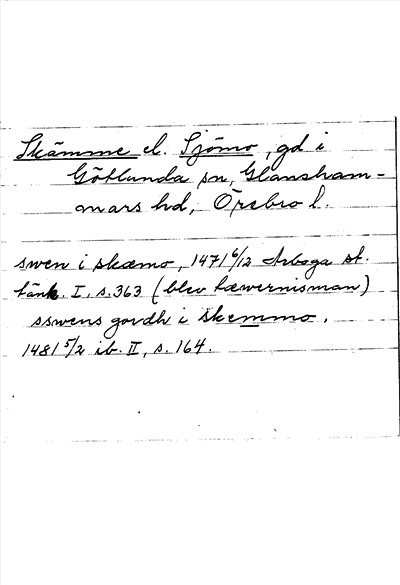 Skämme el. Sjömo, gd i
Götlunda sn, Glansham-
mars hd, Örebro l.
swen i skæmo, 1471 6/12 Arboga st.
tänk. I, s. 363 (blev hæwernisman)
sswens gordh i skemmo,
1481 5/2 ib. II, s. 164.